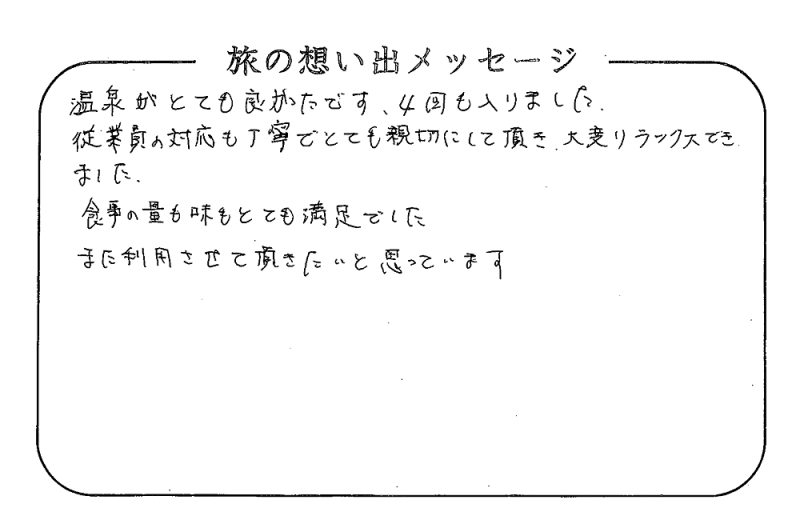 旅の想い出メッセージ
温泉がとても良かたです、4回も入りました.
従業員の対応も丁寧でとても親切にして頂き、大変リラックスでき
ました.
食事の量も味もとても満足でした
また利用させて頂きたいと思っています